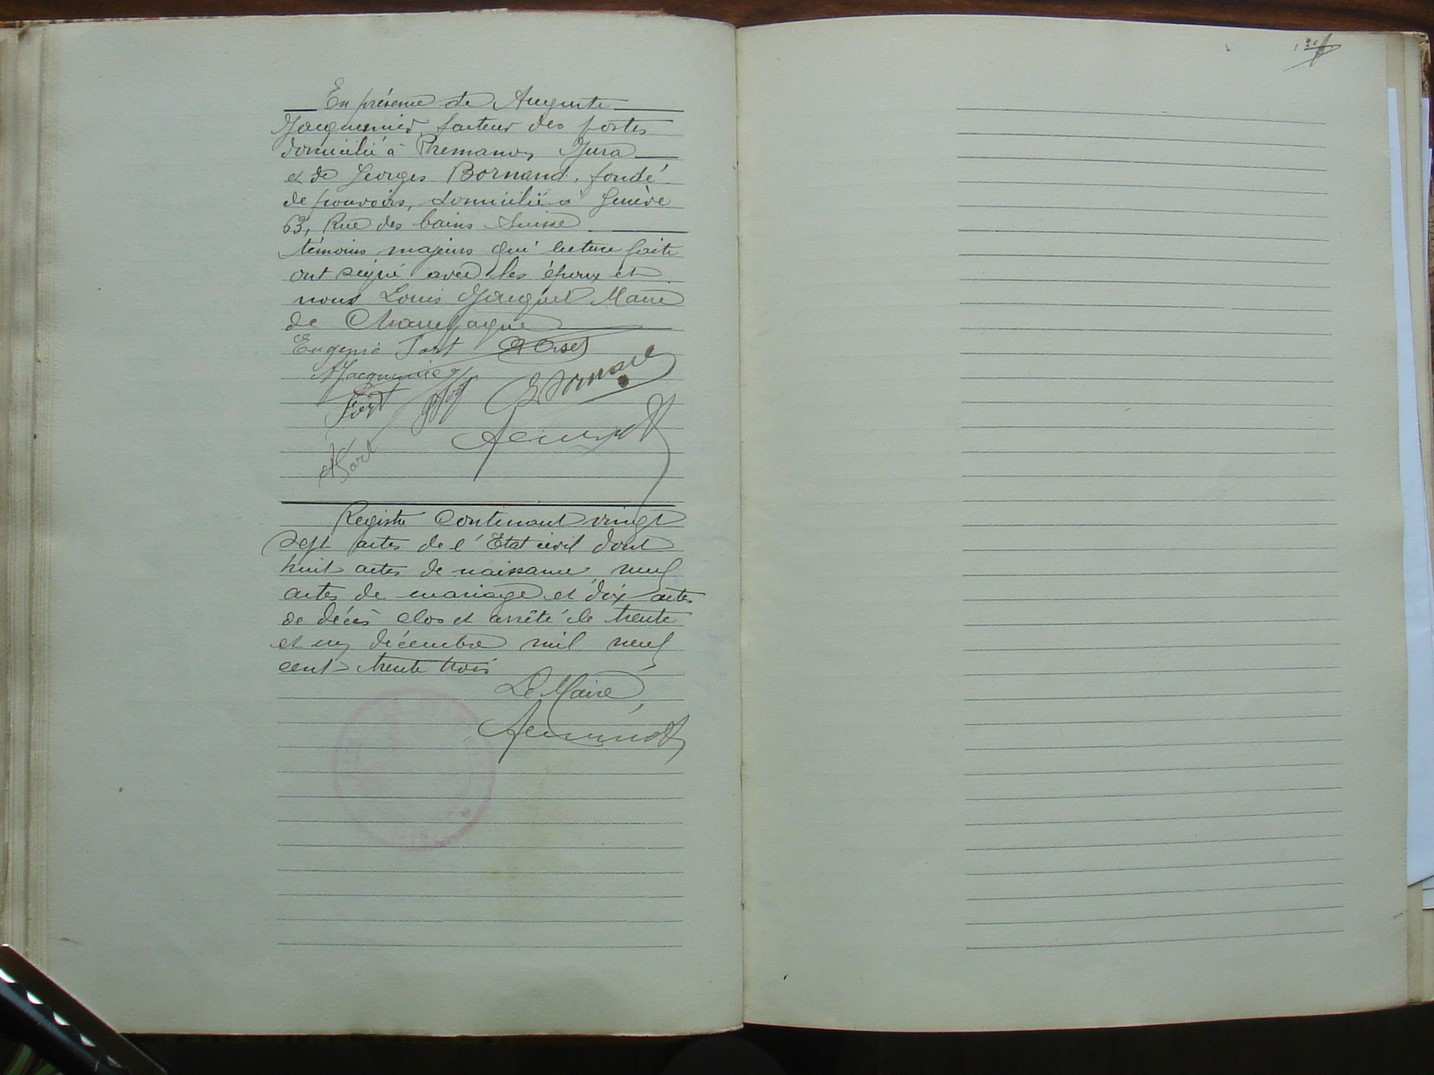 En présence de Auguste
Jacquemier, facteur des postes
domicilié à Prémanon Jura
et de Georges Bornand, fondé
de pouvoirs, domicilié à Genève
63, Rue des bains Suisse
témoins majeurs qui lecture faite
ont signé avec les époux et
nous Louis Jacquet Maire
de Champagne
Eugénie Fort
Jacquemier
Fort
Bornand
Fort
Registre contenant vingt
sept actes de l'Etat civil dont
huit actes de naissance neuf
actes de mariage et dix actes
de décès clos et arrêté le trente
et un décembre mil neuf
cent trente trois
Le Maire,